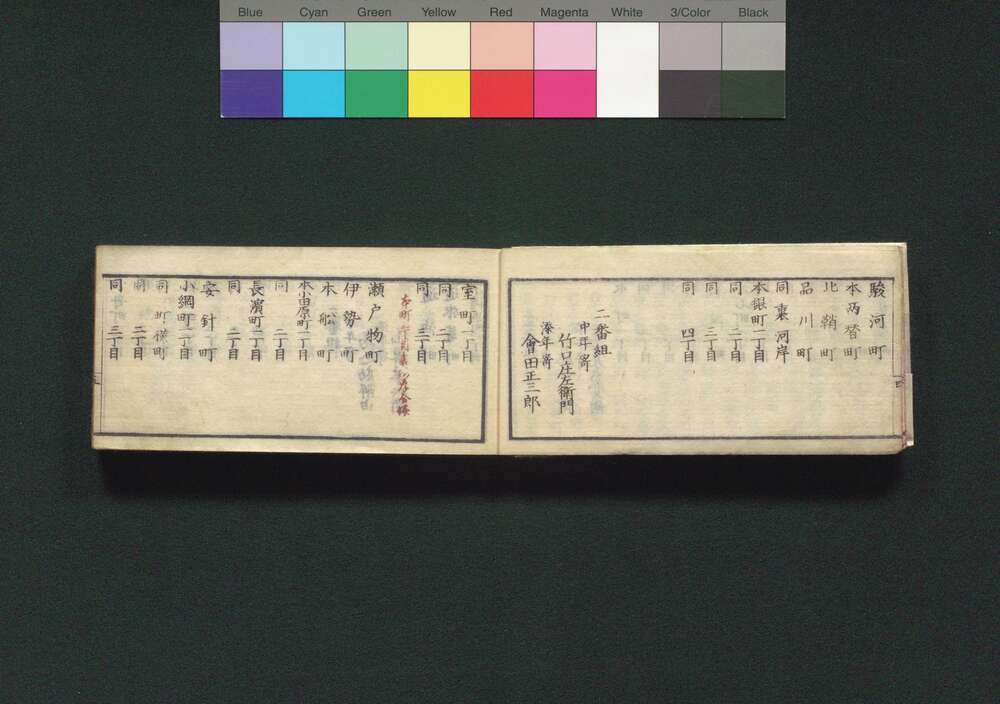 Blue Cyan Green Yellow Red Magenta White 3/Color Black
駿河町
本両替町
北鞘町
品川町
同裏河岸
本銀町一丁目
同 二丁目
同 三丁目
同 四丁目
二番組
竹口庄左衛門
會田正三郎
室町一丁目
同 二丁目
同 三丁目
瀬戸物町
伊勢町
本船町
本小田原町一丁目
同 二丁目
長濱町一丁目
同 二丁目
安針町
小網町一丁目
同町横町
同 二丁目
同 三丁目